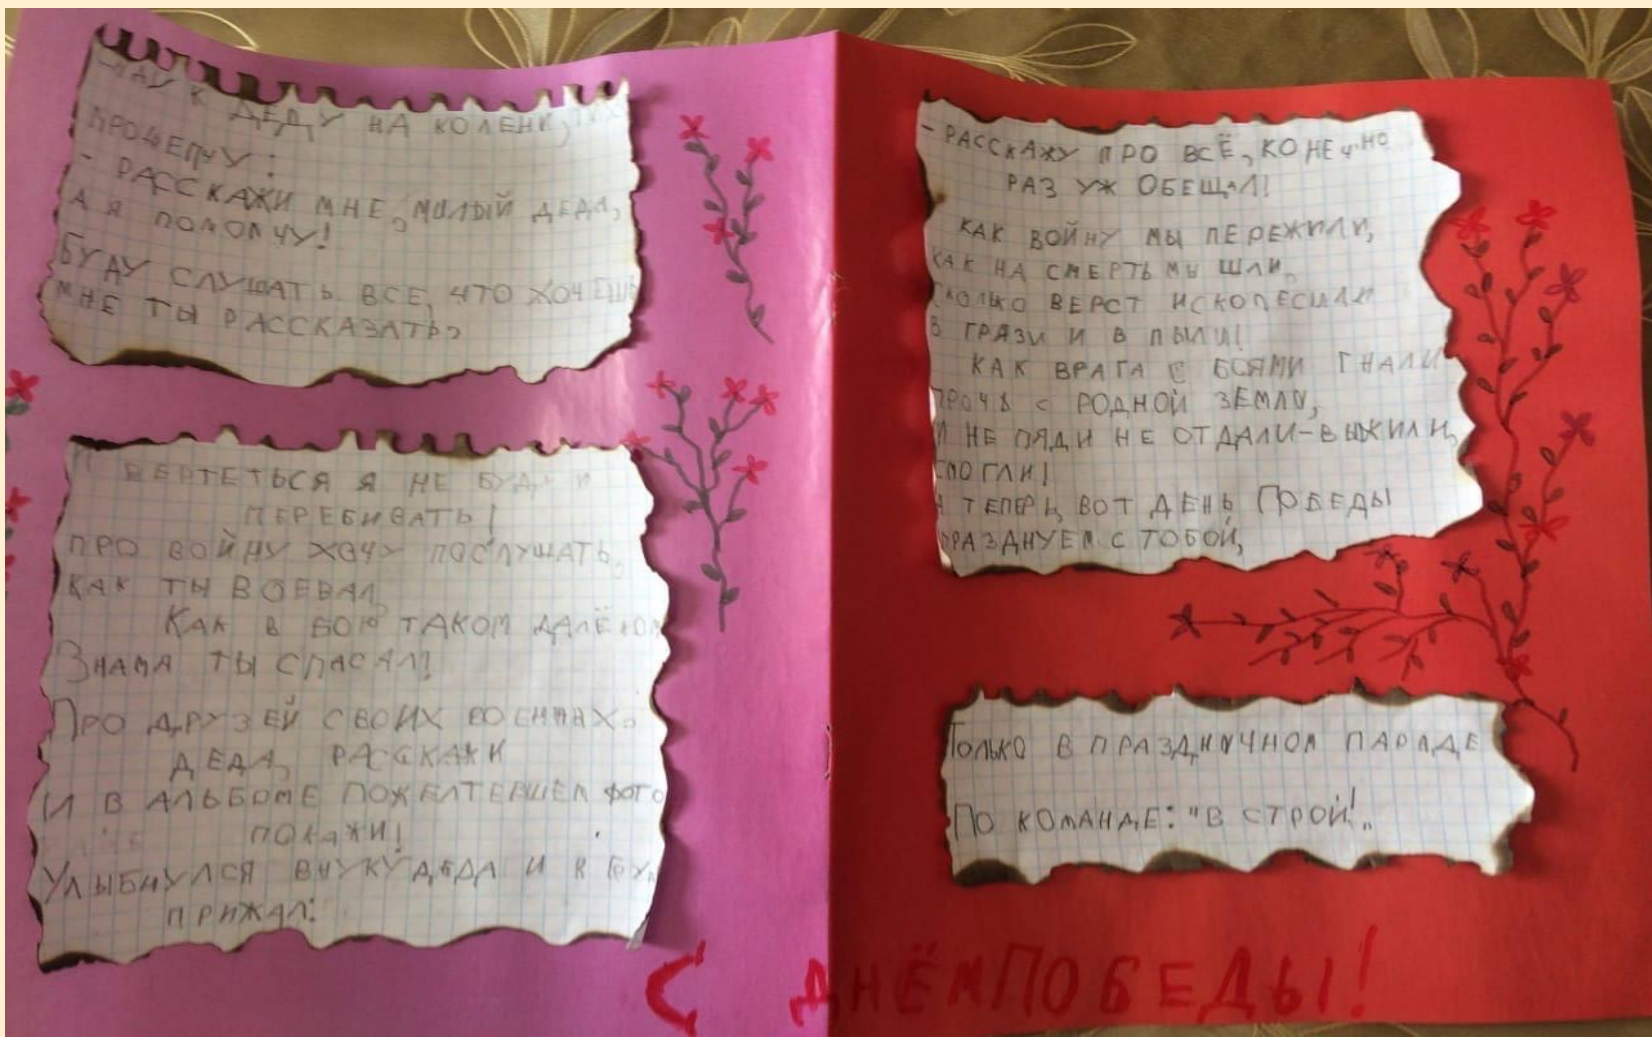 К ДЕДУ НА КОЛЕНИ,
ПРОШЕПЧУ:
- РАССКАЖИ МНЕ, МИЛЫЙ ДЕДА,
А Я ПОМОЛЧУ!
БУДУ СЛУШАТЬ ВСЕ, ЧТО ХОЧЕШЬ
МНЕ ТЫ РАССКАЗАТЬ,
И ВЕРТЕТЬСЯ Я НЕ БУДУ И
ПЕРЕБИВАТЬ!
ПРО ВОЙНУ ХОЧУ ПОСЛУШАТЬ,
КАК ТЫ ВОЕВАЛ,
КАК В БОЮ ТАКОМ ДАЛЁКОМ
ЗНАМЯ ТЫ СПАСАЛ!
ПРО ДРУЗЕЙ СВОИХ ВОЕННЫХ,
ДЕДА, РАССКАЖИ
И В АЛЬБОМЕ ПОЖЕЛТЕВШЕМ ФОТО
ПОКАЖИ!
УЛЫБНУЛСЯ ВНУКУ ДЕДА И К
ПРИЖАЛ:
- РАССКАЖУ ПРО ВСЁ, КОНЕЧНО
РАЗ УЖ ОБЕЩАЛ!
КАК ВОЙНУ МЫ ПЕРЕЖИЛИ,
КАК НА СМЕРТЬ МЫ ШЛИ,
СКОЛЬКО ВЕРСТ ИСКОЛЕСИЛИ
В ГРЯЗИ И В ПЫЛИ!
КАК ВРАГА С БОЯМИ ГНАЛИ
ПРОЧЬ С РОДНОЙ ЗЕМЛИ,
И НЕ ПЯДИ НЕ ОТДАЛИ-ВЫЖИЛИ,
СМОГЛИ!
А ТЕПЕРЬ ВОТ ДЕНЬ ПОБЕДЫ
ПРАЗДНУЕМ С ТОБОЙ,
ТОЛЬКО В ПРАЗДНИЧНОМ ПАРАДЕ
ПО КОМАНДЕ: "В СТРОЙ!"
С ДНЁМ ПОБЕДЫ!